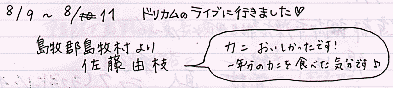 8/9 ~ 8/11 ドリカムのライブに行きました♡
島牧郡島牧村より
佐藤由枝
カニ おいしかったです!
一年分のカニを食べた気分です♪